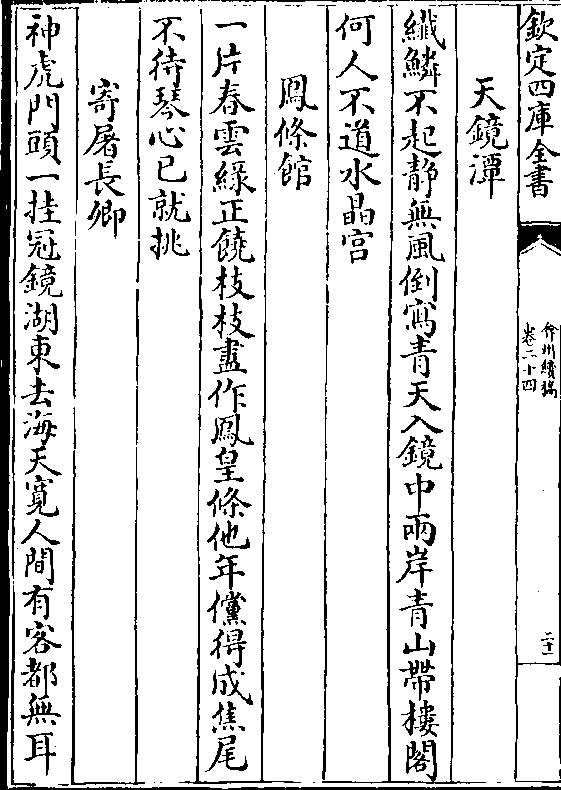 欽定四庫全書
弇州續稿
卷二十四
二十一
天鏡潭
纎鱗不起静無風倒寫青天入鏡中兩岸青山帶樓閣
何人不道水晶宫
鳳條館
一片春雲緑正饒枝枝盡作鳳皇條他年儻得成焦尾
不待琴心已就挑
寄屠長卿
神虎門頭一挂冠鏡湖東去海天寛人間有客都無耳